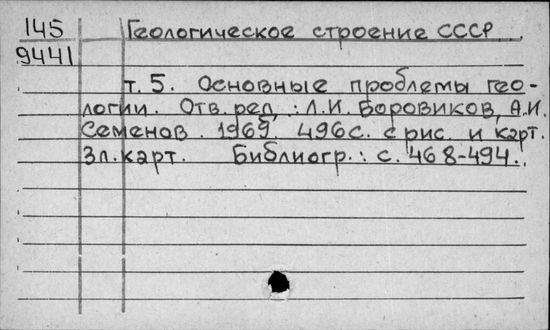 145 Геологическое строение СССР
9441
т. 5. Основные проблемы гео-
логии. Отв. ред.: Л.И. Боровиков, А.И.
Семенов. 1969. 496 с. с рис. и карт.
3 л. карт. Библиогр.: с. 468-494.